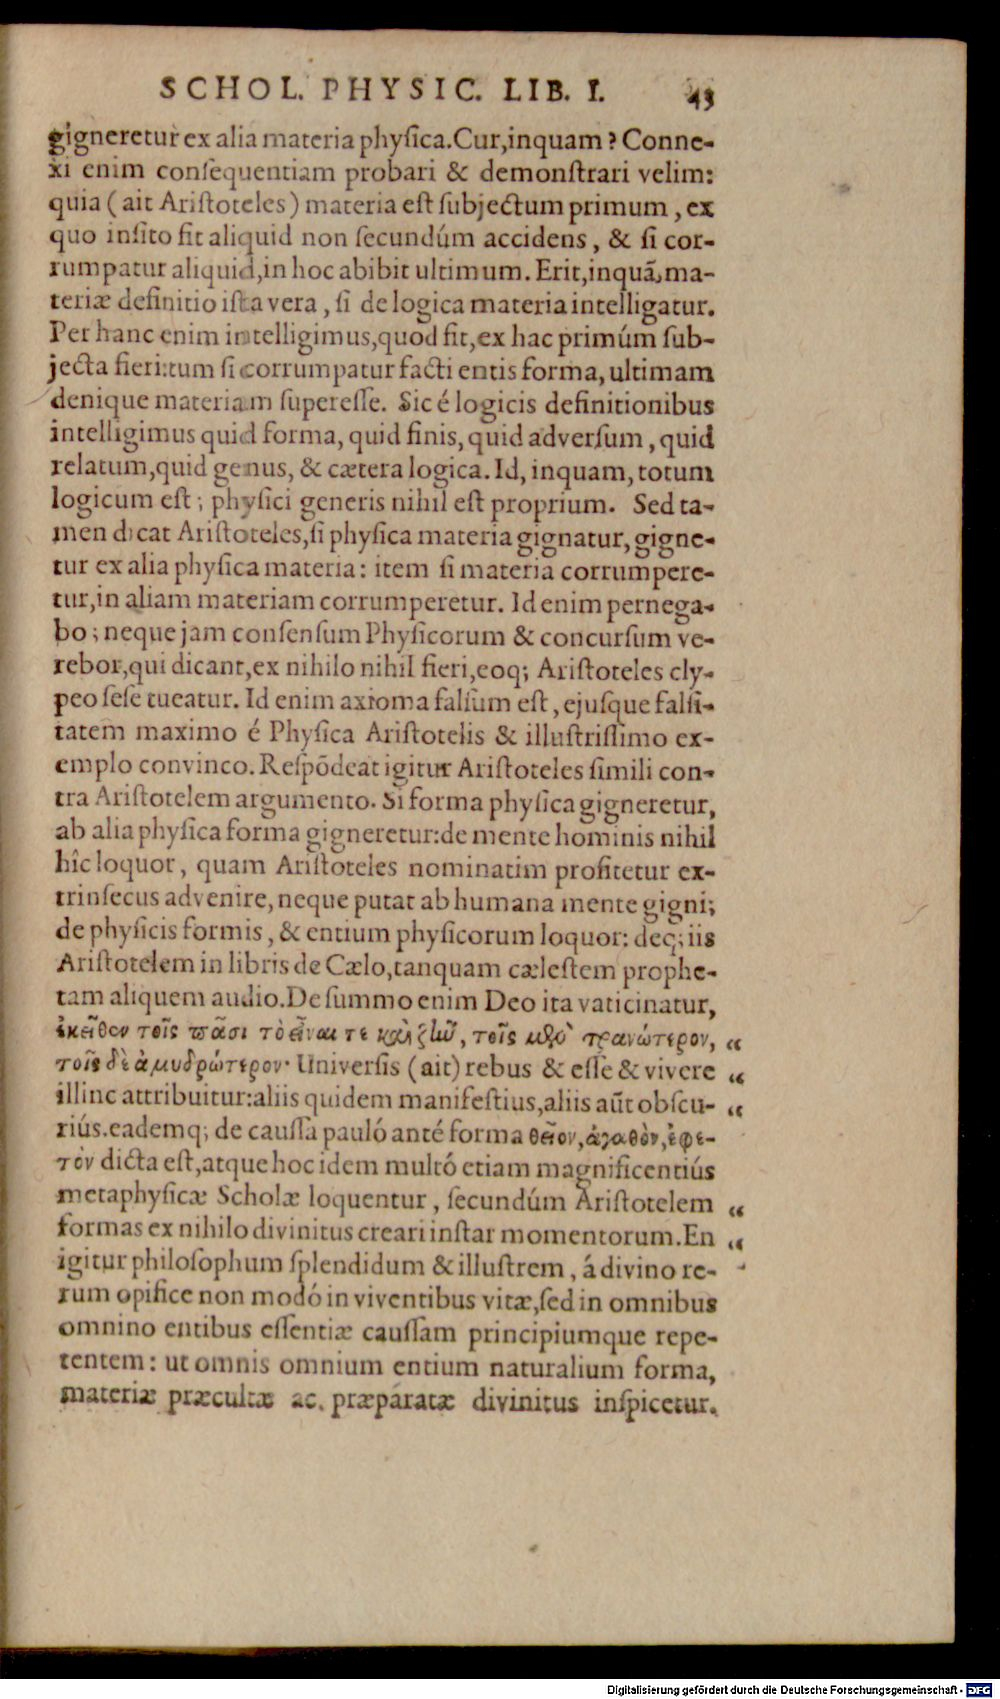 SCHOL. PHYSIC. LIB. I. 43
gigneretur ex alia materia physica. Cur, inquam? Conne-
xi enim consequentiam probari & demonstrari velim:
quia (ait Aristoteles) materia est subjectum primum, ex
quo insito fit aliquid non secundúm accidens, & si cor-
rumpatur aliquid, in hoc abibit ultimum. Erit, inquã, ma-
teriæ definitio ista vera, si de logica materia intelligatur.
Per hanc enim intelligimus, quod fit, ex hac primúm sub-
jecta fieri: tum si corrumpatur facti entis forma, ultimam
denique materiam superesse. Sic é logicis definitionibus
intelligimus quid forma, quid finis, quid adversum, quid
relatum, quid genus, & cætera logica. Id, inquam, totum
logicum est; physici generis nihil est proprium. Sed ta-
men dicat Aristoteles, si physica materia gignatur, signe-
tur ex alia physica materia: item si materia corrumpere-
tur, in aliam materiam corrumperetur. Id enim pernega-
bo; neque jam consensum Physicorum & concursum ve-
rebor, qui dicant, ex nihilo nihil fieri, eoq; Aristoteles cly-
peo sese tueatur. Id enim axioma falsum est, ejusque falsi-
tatem maximo é Physica Aristotelis & illustrissimo ex-
emplo convinco. Respõdeat igitur Aristoteles simili con-
tra Aristotelem argumento. Si forma physica gigneretur,
ab alia physica forma gigneretur: de mente hominis nihil
hîc loquor, quam Aristoteles nominatim profitetur ex-
trinsecus advenire, neque putat ab humana mente gigni;
de physicis formis, & entium physicorum loquor: deq; iis
Aristotelem in libris de Cælo, tanquam cælestem prophe-
tam aliquem audio. De summo enim Deo ita vaticinatur,
ἐκεῖθεν τοῖς πᾶσι τὸ εἶναι τε καὶ ζῆν, τοῖς μὲν τρανώτερον, “
τοῖς δὲ ἀμυδρώτερον· Universis (ait) rebus & esse & vivere “
illinc attribuitur: aliis quidem manifestius, aliis aũt obscu- “
riús. eademq; de caussa pauló anté forma θεῖον, ἀγαθὸν, ἐφε-
τὸν dicta est, atque hoc idem multó etiam magnificentiús
metaphysicæ Scholæ loquentur, secundúm Aristotelem “
formas ex nihilo divinitus creari instar momentorum. En “
igitur philosophum splendidum & illustrem, á divino re-
rum opifice non modó in viventibus vitæ, sed in omnibus
omnino entibus essentiæ caussam principiumque repe-
tentem: ut omnis omnium entium naturalium forma,
materiæ præcultæ ac præparatæ divinitus inspicetur.
Digitalisierung gefördert durch die Deutsche Forschungsgemeinschaft - DFG